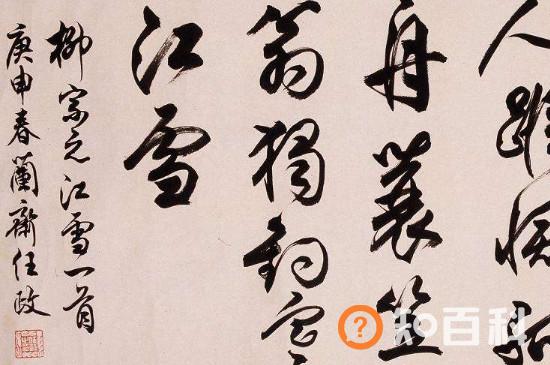 人蹤滅孤
舟蓑笠
翁獨釣寒
江雪
柳宗元江雪一首
庚申春蘭齋任政
知百科